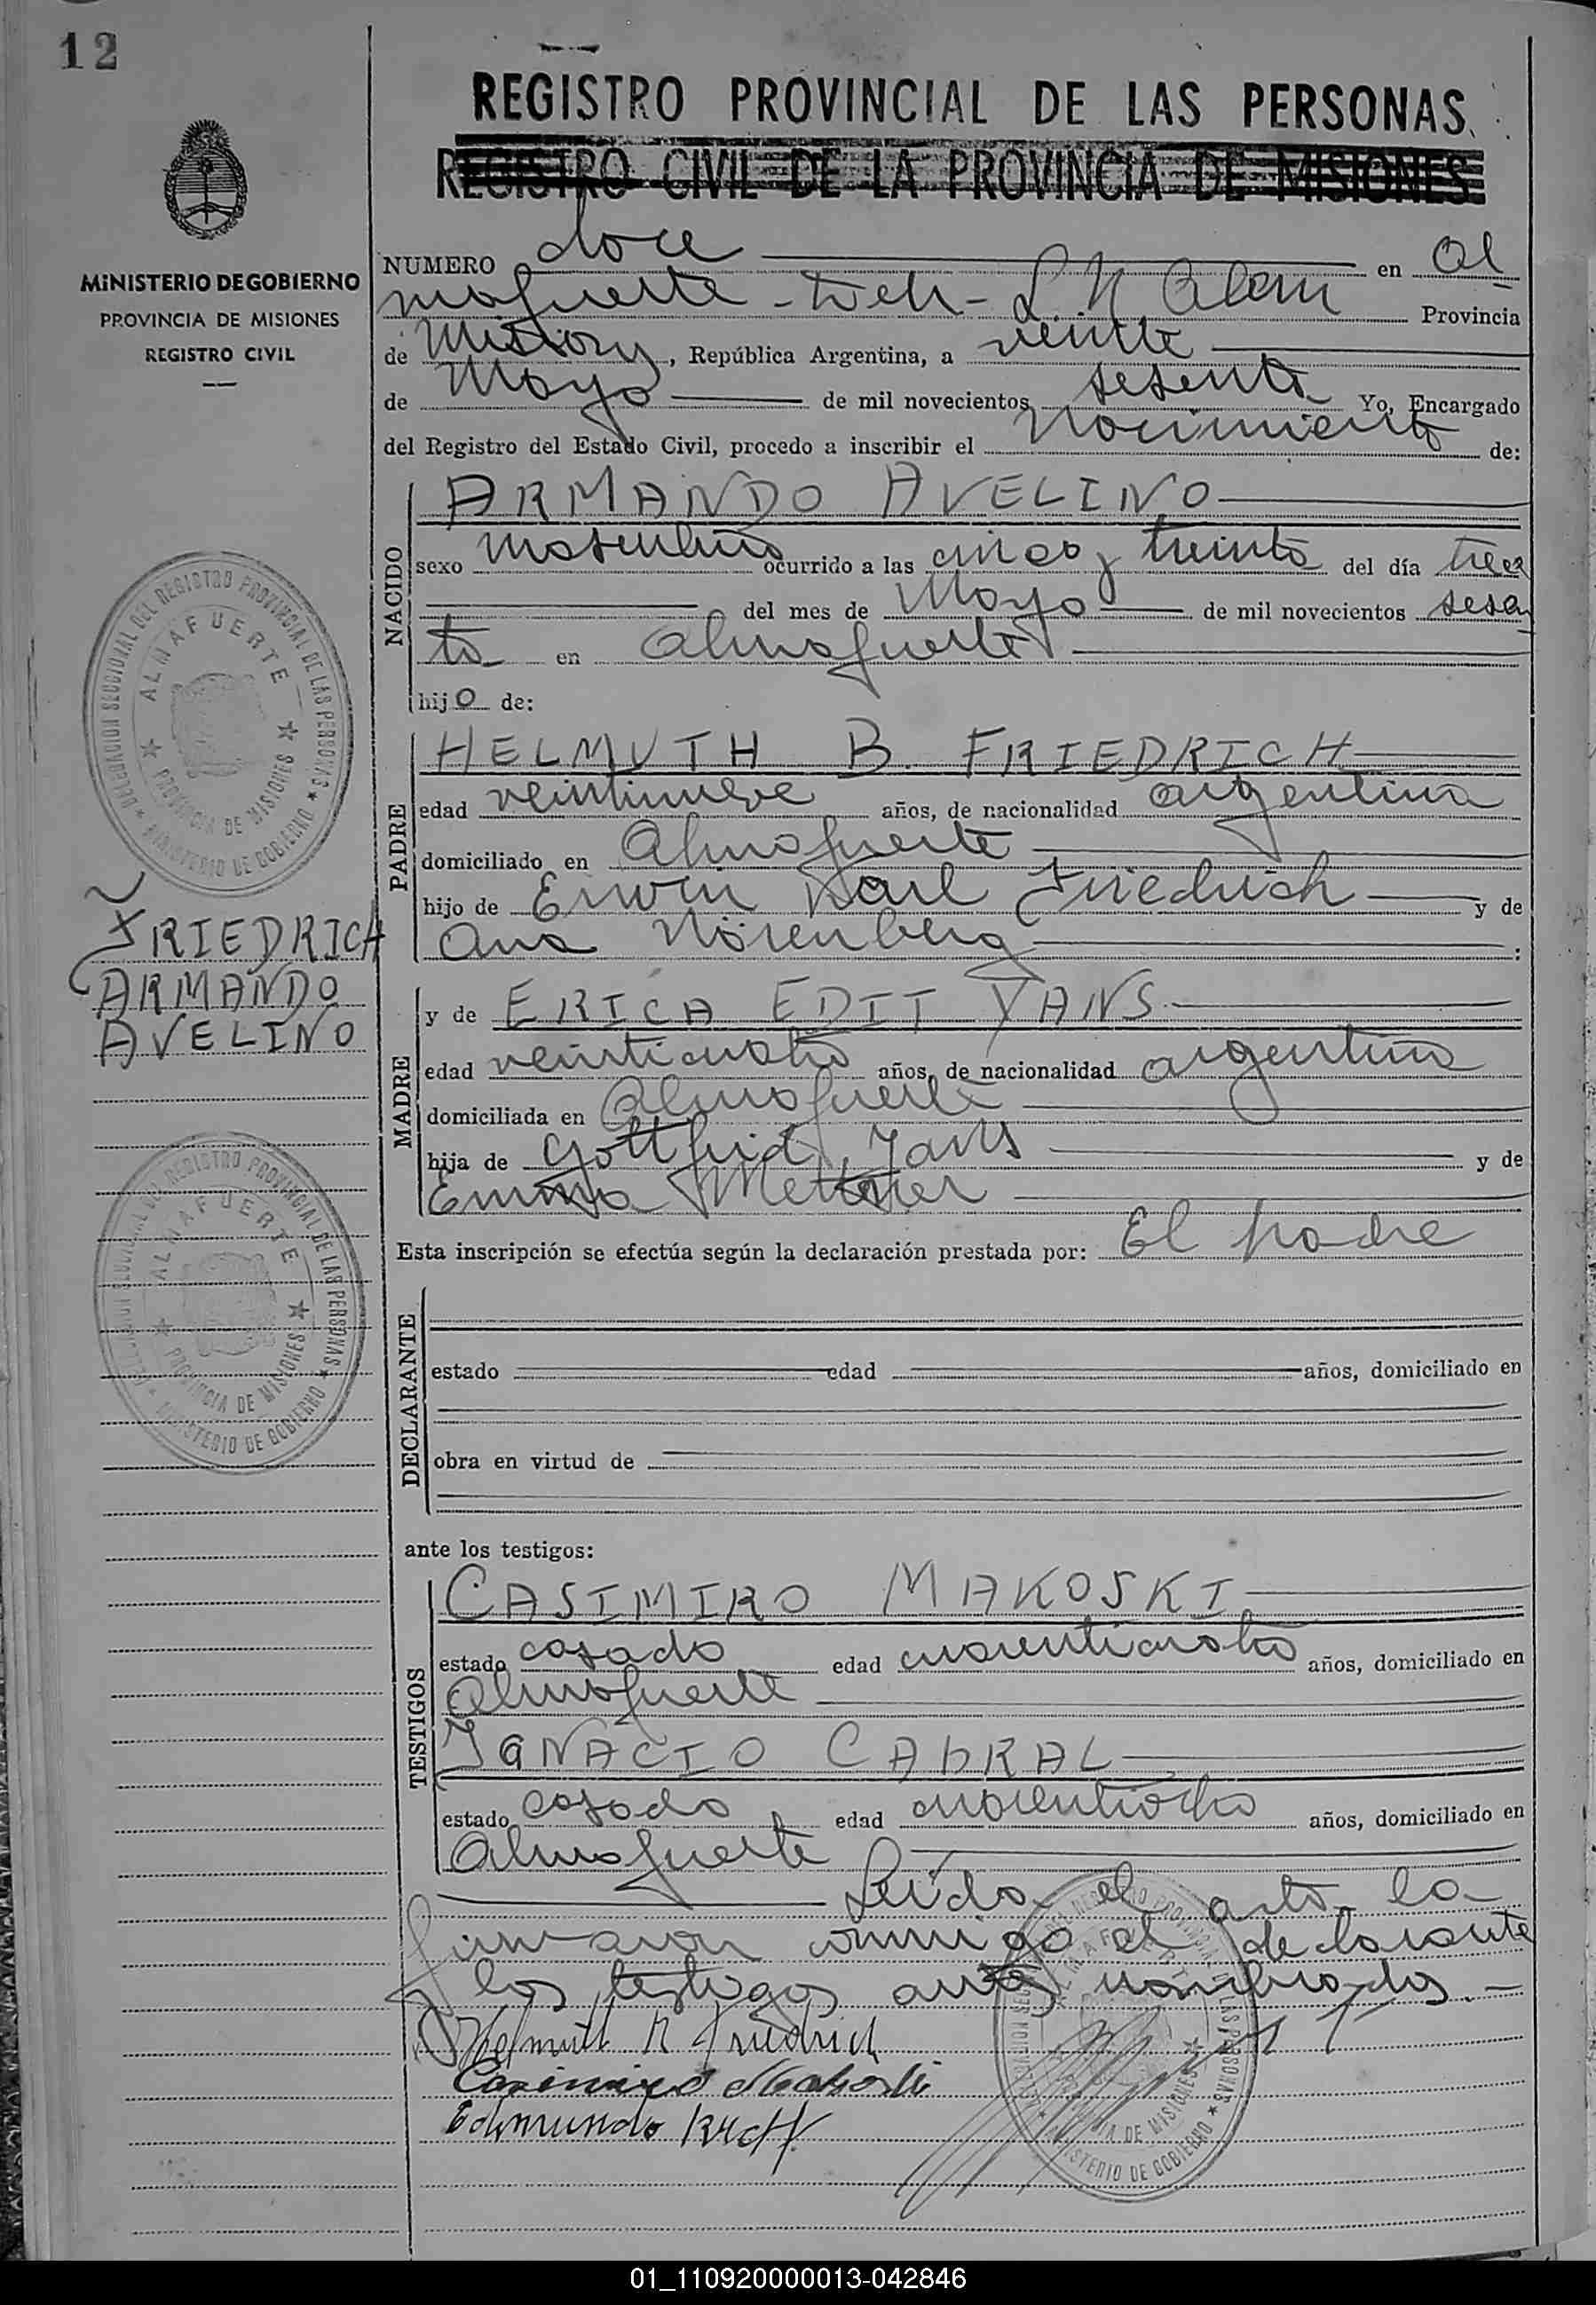 12
REGISTRO PROVINCIAL DE LAS PERSONAS.
REGISTRO CIVIL DE LA PROVINCIA DE MISIONES
MINISTERIO DE GOBIERNO
PROVINCIA DE MISIONES
REGISTRO CIVIL
NUMERO doce en Al
mafuerte - L N Alem Provincia
de Misiones, República Argentina, a veinte
de Mayo de mil novecientos sesenta Yo, Encargado
del Registro del Estado Civil, procedo a inscribir el Nacimiento de:
NACIDO
ARMANDO AVELINO
sexo masculino ocurrido a las cinco y treinta del día trece
del mes de Mayo de mil novecientos sesen
ta en Almafuerte
hijo de:
PADRE
HELMUTH B. FRIEDRICH
edad veintinueve años, de nacionalidad argentina
domiciliado en Almafuerte
hijo de Erwin Karl Friedrich y de
Ana Nörenberg :
FRIEDRICH
ARMANDO
AVELINO
MADRE
y de ERICA EDIT YANS
edad veinticuatro años, de nacionalidad argentina
domiciliada en Almafuerte
hija de Gottfrid Jans y de
Emma
Esta inscripción se efectúa según la declaración prestada por: El padre
DECLARANTE
estado edad años, domiciliado en
obra en virtud de
ante los testigos:
TESTIGOS
CASIMIRO MAKOSKI
estado casado edad cuarenticuatro años, domiciliado en
Almafuerte
IGNACIO CABRAL
estado casado edad cuarentiocho años, domiciliado en
Almafuerte
Leído el acto, la
firmaron conmigo el declarante
y los testigos antes nombrados.-
Helmuth B. Friedrich
Casimiro Makoski
Edmundo
DELEGACION SECCIONAL DEL REGISTRO PROVINCIAL DE LAS PERSONAS
ALMAFUERTE
PROVINCIA DE MISIONES
MINISTERIO DE GOBIERNO
01_110920000013-042846